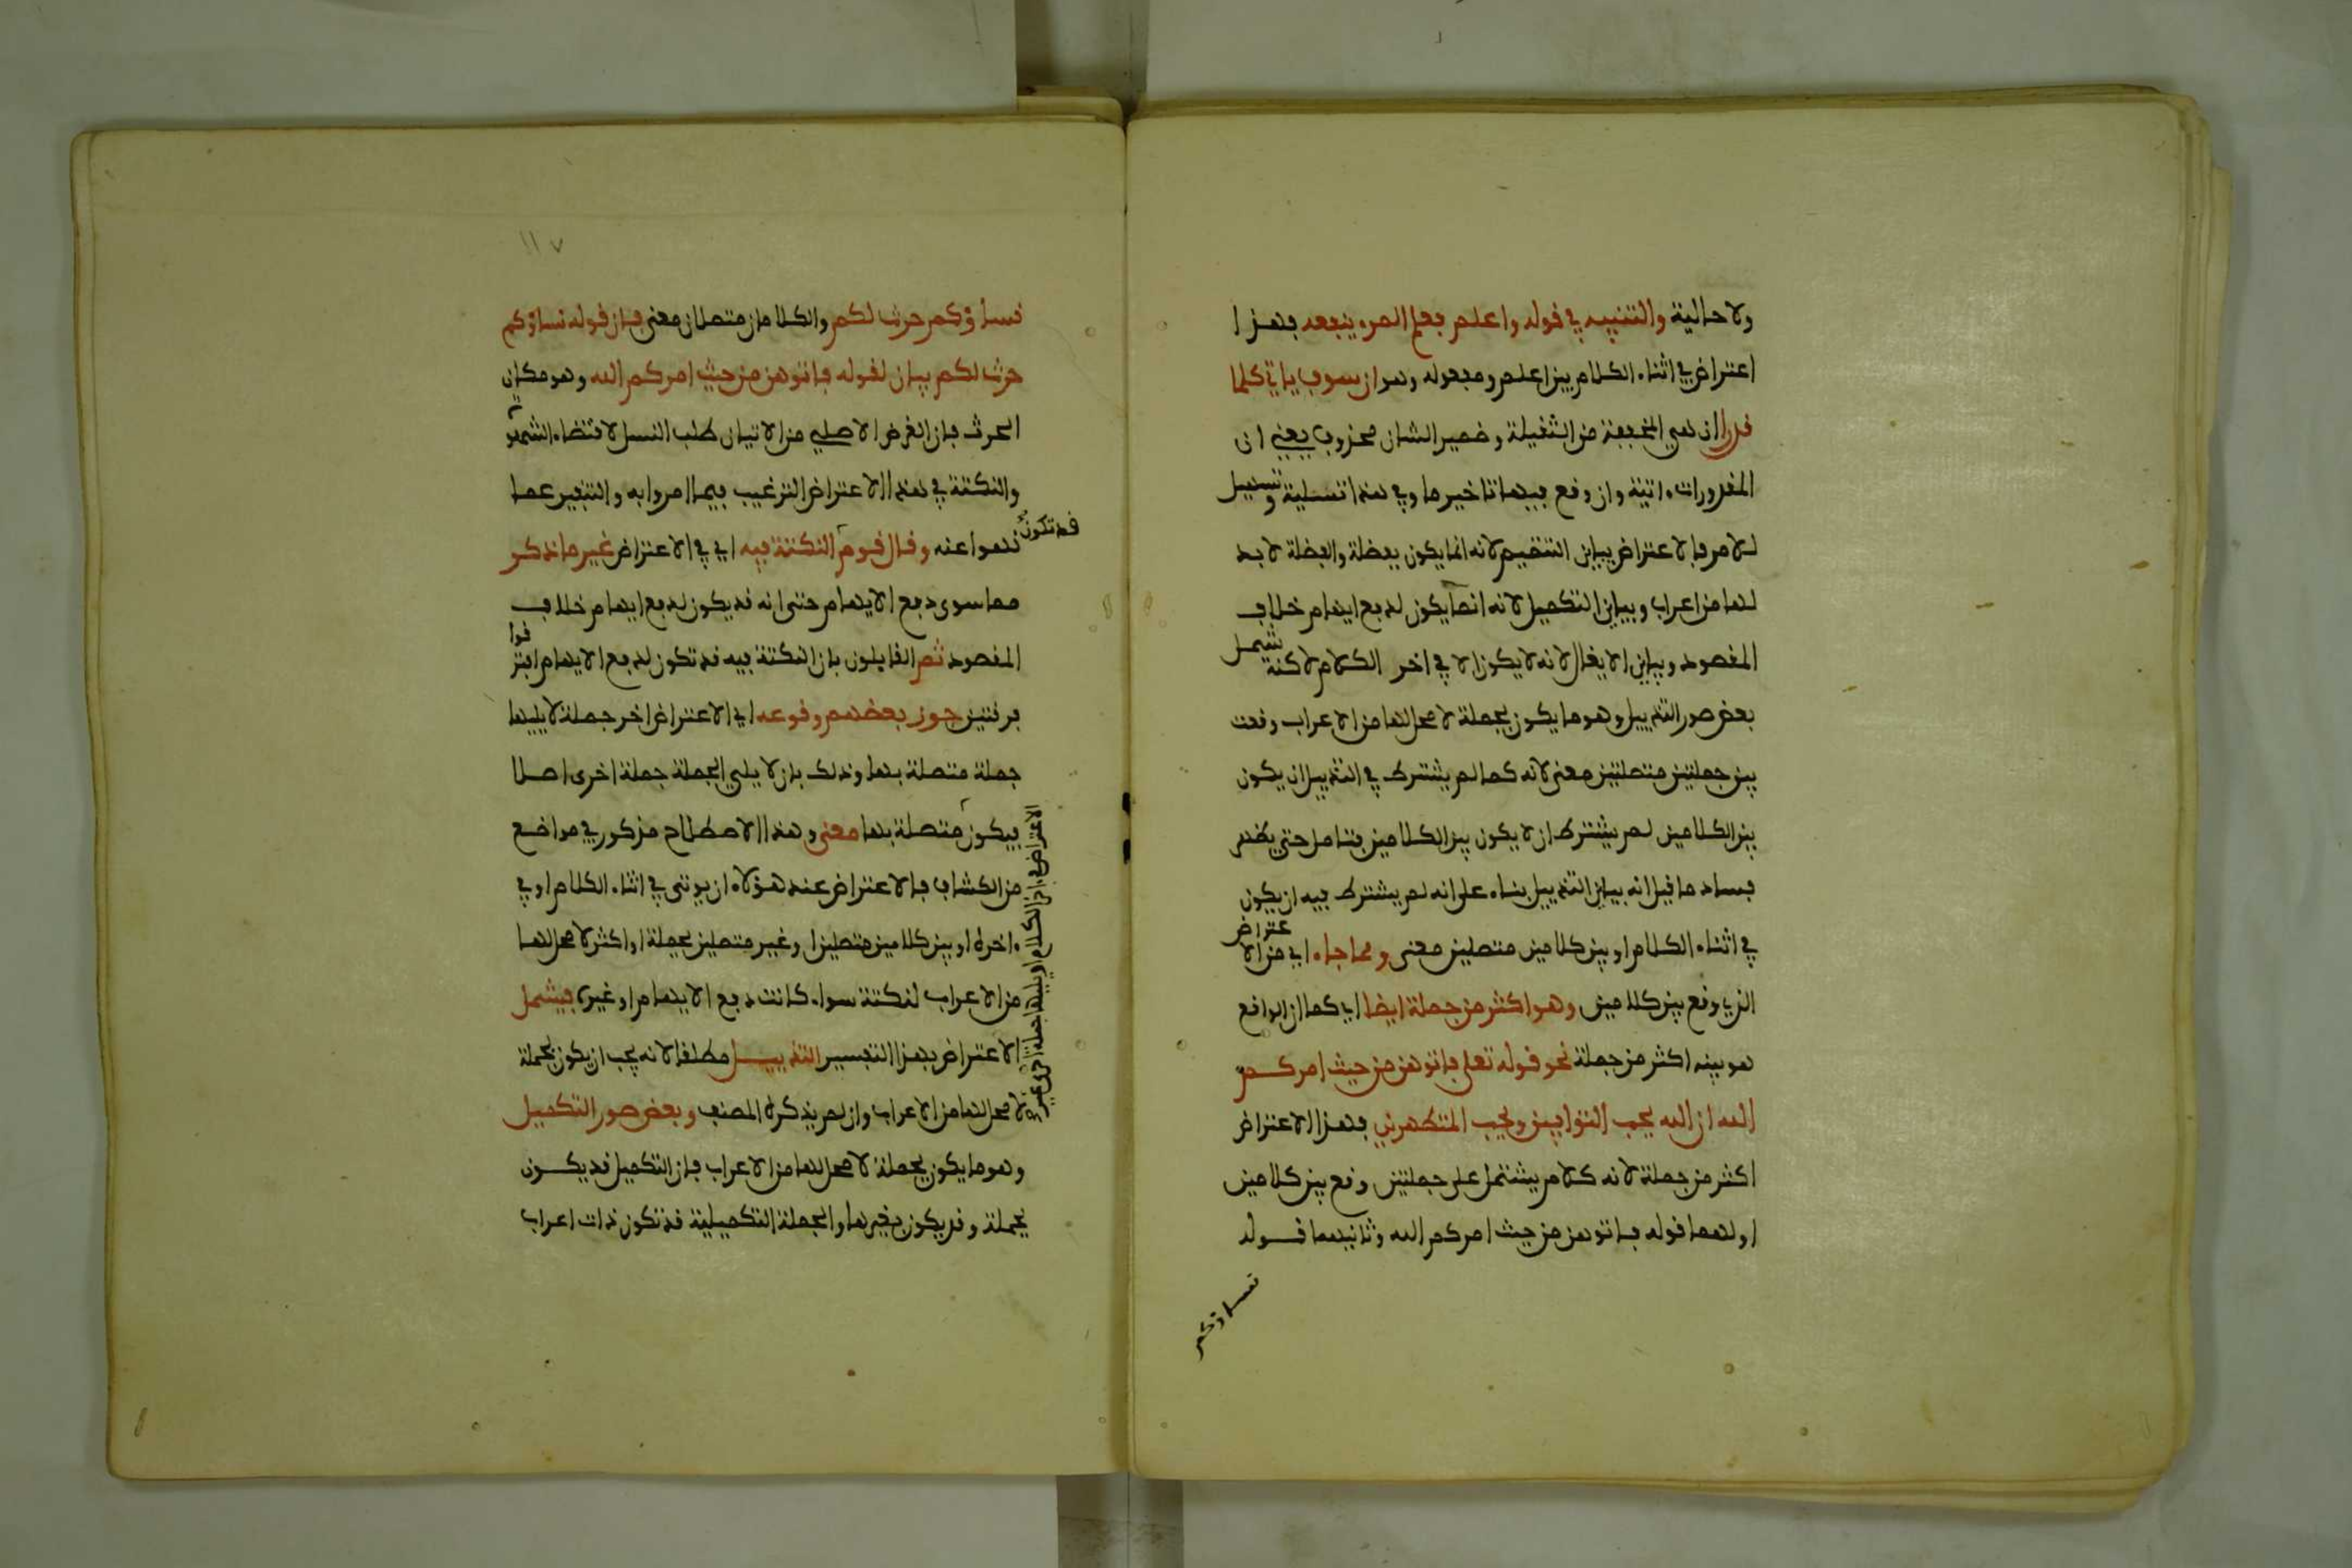 ولا حالية والتنبيه في قوله واعلم فعلم المرء ينفعه فهذا
اعتراض في اثناء الكلام بين اعلم ومفعوله وهو ان سوف ياتي كلما
قدرا ان هي المخففة من الثقيلة وضمير الشان محذوف يعني ان
المقدورات ءاتية وان وقع فيها تاخير ما وفي هذا تسلية وتسهيل
للامر فالاعتراض يباين التتميم لانه انما يكون بفضلة والفضلة لا بد
لها من اعراب ويباين التكميل لانه انما يكون لدفع ايهام خلاف
المقصود ويباين الايغال لانه لا يكون الا في اخر الكلام لاكنه يشمل
بعض صور التذييل وهو ما يكون بجملة لا محل لها من الاعراب وقعت
بين جملتين متصلتين معنى لانه كما لم يشترط في التذييل ان يكون
بين الكلامين لم يشترط ان لا يكون بين الكلامين فتامل حتى يظهر
فساد ما قيل انه يباين التذييل بناء على انه لم يشترط فيه ان يكون
في اثناء الكلام او بين كلامين متصلين معنى ومما جاء اي من الاعتراض
الذي وقع بين كلامين وهو اكثر من جملة ايضا اي كما ان الواقع
هو بينه اكثر من جملة نحو قوله تعلى فاتوهن من حيث امركم
الله ان الله يحب التوابين ويحب المتطهرين فهذا الاعتراض
اكثر من جملة لانه كلام يشتمل على جملتين وقع بين كلامين
اولهما قوله فاتوهن من حيث امركم الله وثانيهما قوله
نساؤكم
١١٧
نساؤكم حرث لكم والكلامان متصلان معنى فان قوله نساؤكم
حرث لكم بيان لقوله فاتوهن من حيث امركم الله وهو مكان
الحرث فان الغرض الاصلي من الاتيان طلب النسل لا قضاء الشهوة
والنكتة في هذا الاعتراض الترغيب فيما امروا به والتنفير عما
نهوا عنه وقال قوم قد تكون النكتة فيه اي في الاعتراض غير ما ذكر
مما سوى دفع الايهام حتى انه قد يكون لدفع ايهام خلاف
المقصود ثم القايلون بان النكتة فيه قد تكون لدفع الايهام افترقوا
فرقتين جوز بعضهم وقوعه اي الاعتراض اخر جملة لا يليها
جملة متصلة بها وذلك بان لا يلي الجملة جملة اخرى اصلا
فيكون الاعتراض في اخر الكلام او يليها جملة اخرى غير متصلة بها معنى وهذا الاصطلاح مذكور في مواضع
من الكشاف فالاعتراض عند هؤلاء ان يوتى في اثناء الكلام او في
ءاخره او بين كلامين متصلين او غير متصلين بجملة او اكثر لا محل لها
من الاعراب لنكتة سواء كانت دفع الايهام او غيره فيشمل
الاعتراض بهذا التفسير التذييل مطلقا لانه يجب ان يكون بجملة
لا محل لها من الاعراب وان لم يذكره المصنف وبعض صور التكميل
وهو ما يكون بجملة لا محل لها من الاعراب فان التكميل قد يكون
بجملة وقد يكون بغيرها والجملة التكميلية قد تكون ذات اعراب